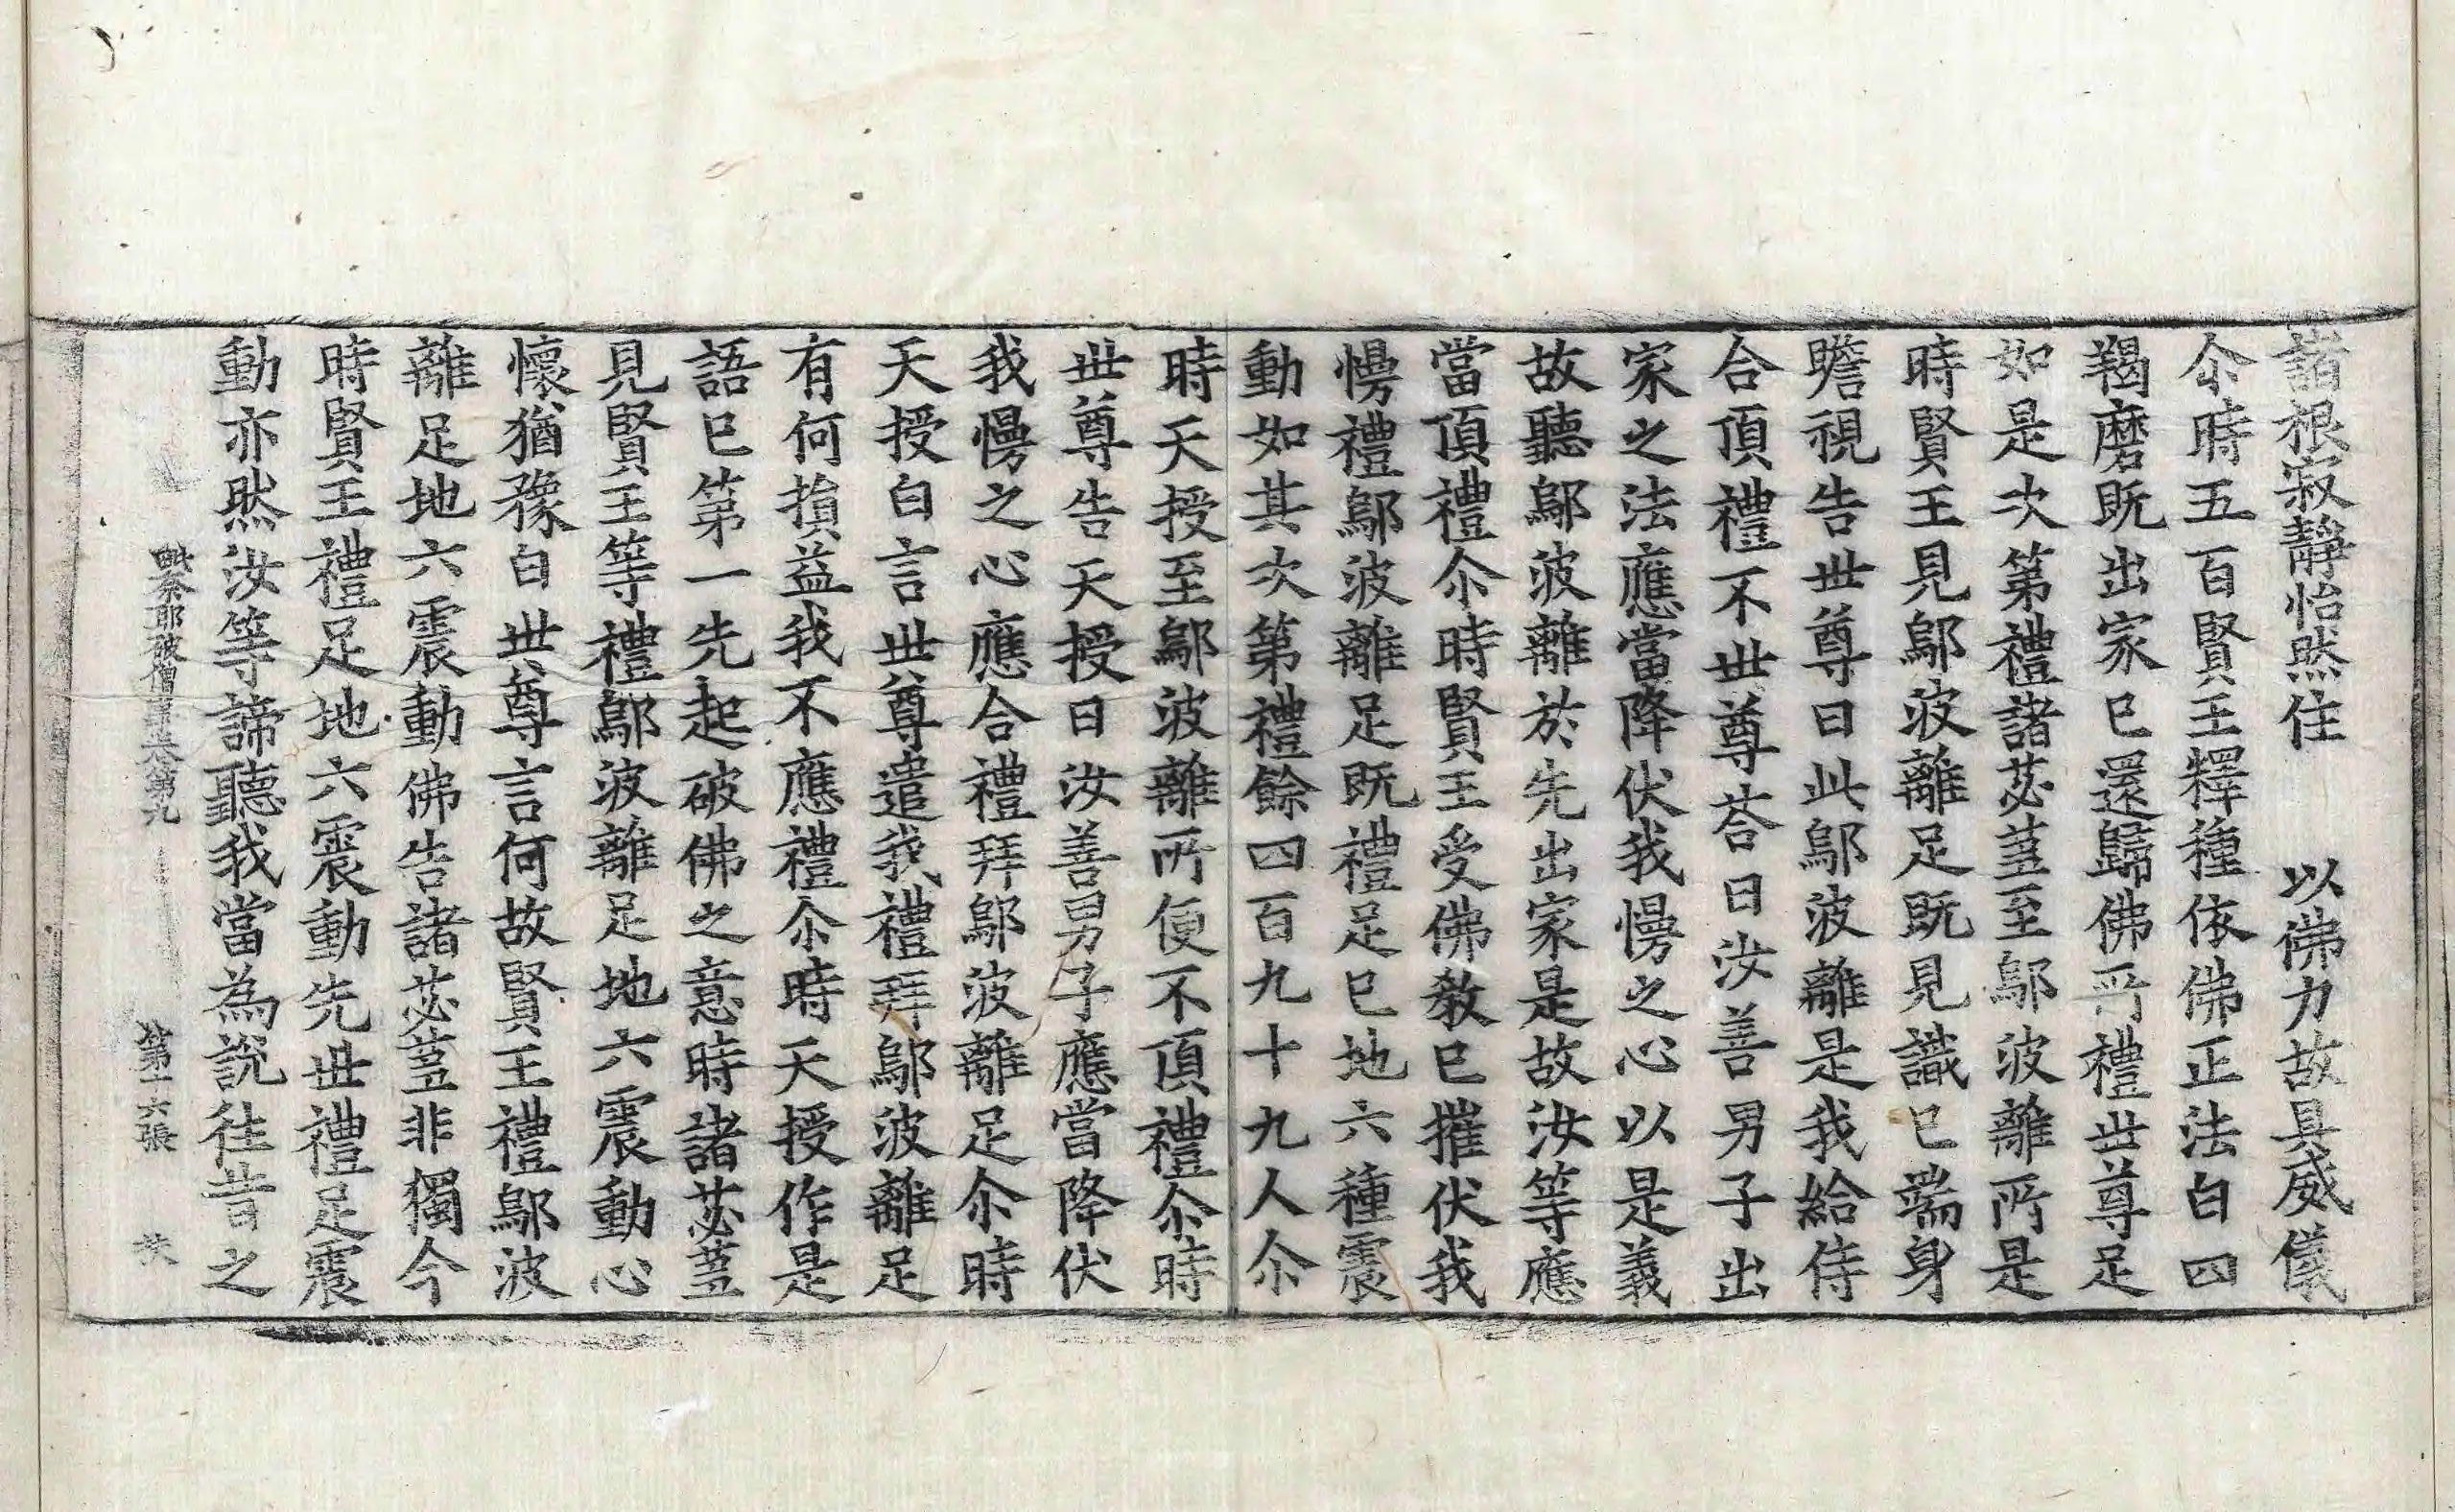 諸根寂靜怡然住　以佛力故具威儀
尒時五百賢王釋種依佛正法白四
羯磨既出家已還歸佛所禮世尊足
如是次第禮諸苾蒭至鄔波離所是
時賢王見鄔波離足既見識已端身
瞻視告世尊曰此鄔波離是我給侍
合頂禮不世尊荅曰汝善男子出
家之法應當降伏我慢之心以是義
故聽鄔波離於先出家是故汝等應
當頂禮尒時賢王受佛教已摧伏我
慢禮鄔波離足既禮足已地六種震
動如其次第禮餘四百九十九人尒
時天授至鄔波離所便不頂禮尒時
世尊告天授曰汝善男子應當降伏
我慢之心應合禮拜鄔波離足尒時
天授白言世尊遣我禮拜鄔波離足
有何損益我不應禮尒時天授作是
語已第一先起破佛之意時諸苾蒭
見賢王等禮鄔波離足地六震動心
懷猶豫白世尊言何故賢王禮鄔波
離足地六震動佛告諸苾蒭非獨今
時賢王禮足地六震動先世禮足震
動亦然汝等諦聽我當為說往昔之
毗奈耶破僧事卷第九　第十六張